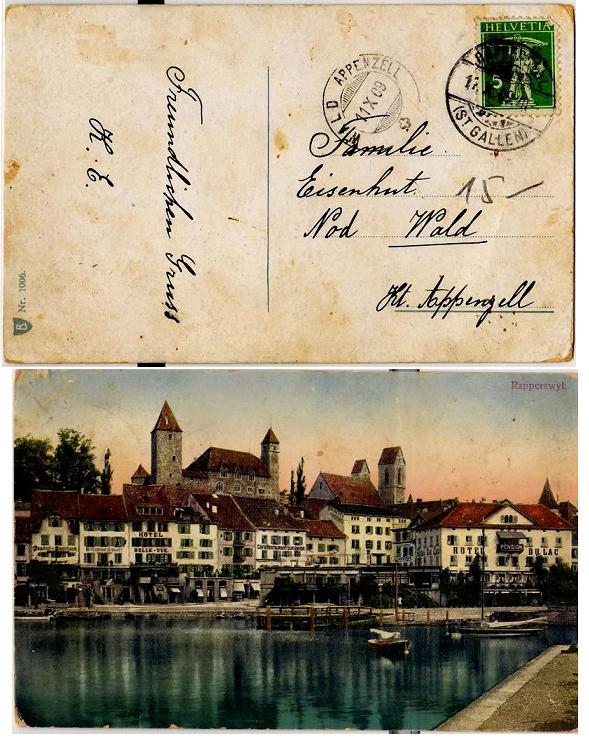 HELVETIA
5
(ST. GALLEN)
WALD APPENZELL
11.X 09
Familie
Eisenhut
Nod Wald
Kt. Appenzell
15 –
Freundlichen Gruss
K. E.
B Nr. 1006.
Rapperswyl.
HOTEL
BELLE-VUE
HOTEL DU LAC
PENSION